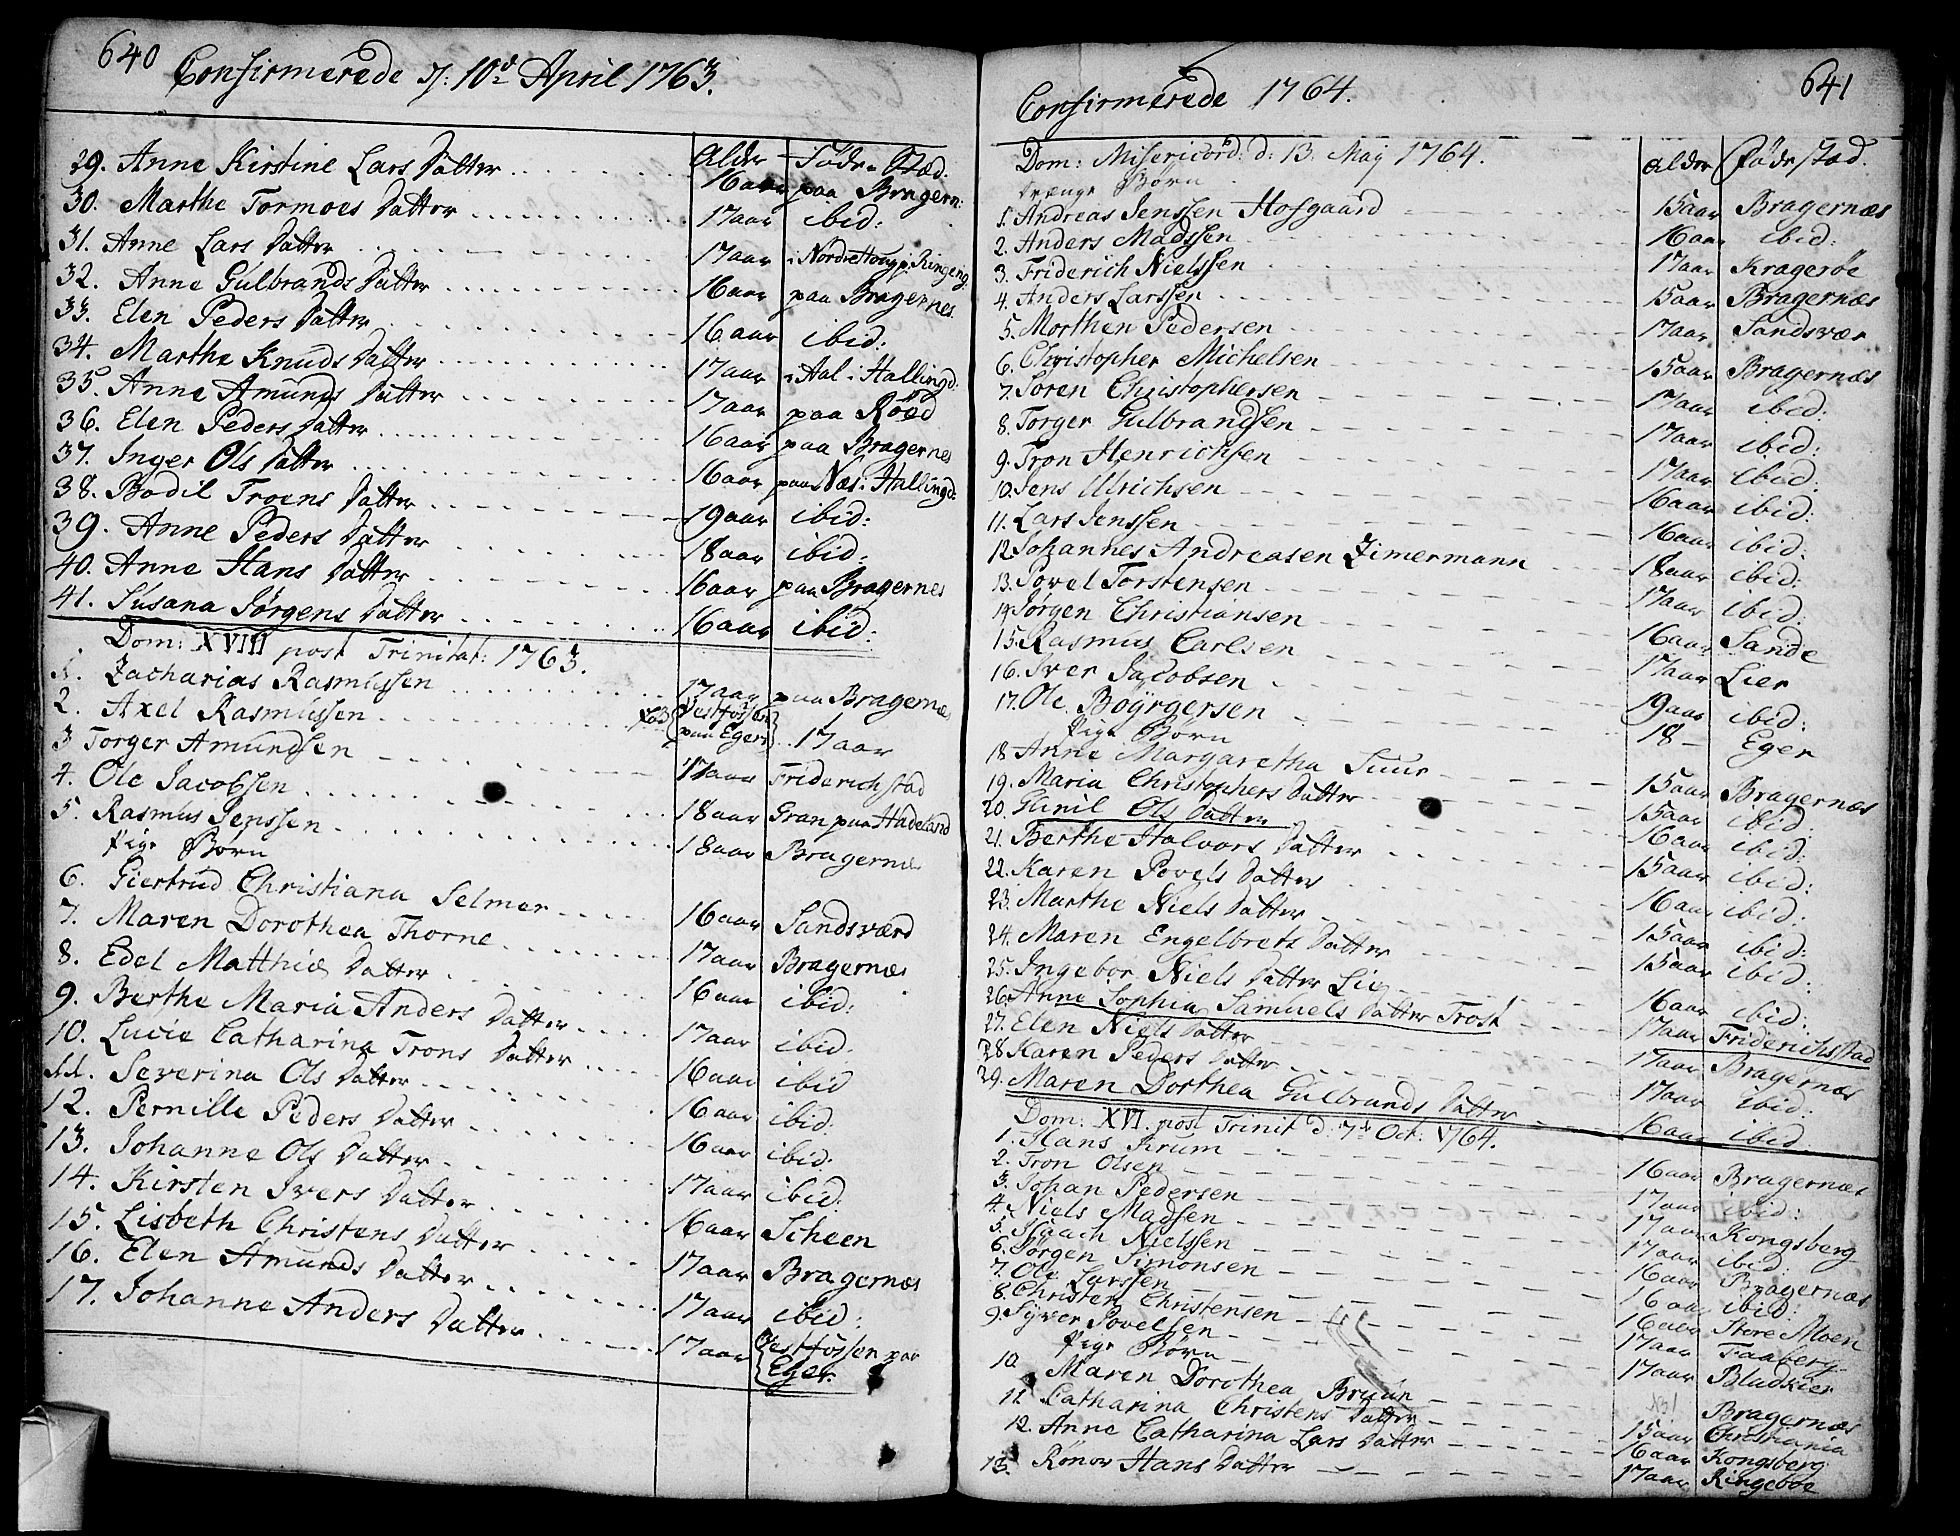 640
Confirmerede d: 10d April 1763.
Alder Føde-Stæd.
29. Anne Kirstine Lars Datter 16 aar paa Bragern:
30. Marthe Tormoes Datter 17 aar ibid:
31. Anne Lars Datter 17 aar i Nordrehoug p: Ringerig
32. Anne Gulbrands Datter 16 aar paa Bragernes
33. Elen Peders Datter 16 aar ibid:
34. Marthe Knuds Datter 17 aar i Aal i Hallingd.
35. Anne Amunds Datter 17 aar paa Röed
36. Elen Peders Datter 16 aar paa Bragernes
37. Inger Ols Datter 16 aar paa Næs i Hallingd:
38. Bodil Troens Datter 19 aar ibid:
39. Anne Peders Datter 18 aar ibid:
40. Anne Hans Datter 16 aar paa Bragernes
41. Susana Jørgens Datter 16 aar ibid:
Dom: XVIII post Trinitat: 1763.
1. Zacharias Rasmussen 17 aar paa Bragernæs
2. Axel Rasmussen Vestfossen paa Eger 17 aar
3 Torger Amundsen 17 aar Friderichstad
4. Ole Jacobsen 18 aar Gran paa Hadeland
5. Rasmus Jenssen 18 aar Bragernæs
Pige Børn
6. Giertrud Christiana Selmer 16 aar Sandsværd
7. Maren Dorothea Thorne 17 aar Bragernæs
8. Edel Matthiæ Datter 16 aar ibid:
9. Berthe Maria Anders Datter 17 aar ibid.
10. Lucie Catharina Trons Datter 16 aar ibid
11. Severina Ols Datter 16 aar ibid:
12. Pernille Peders Datter 16 aar ibid:
13. Johanne Ols Datter 17 aar ibid:
14. Kirsten Ivers Datter 16 aar Scheen
15. Lisbeth Christens Datter 17 aar Bragernæs
16. Elen Amunds Datter 17 aar ibid:
17. Johanne Anders Datter 17 aar Vestfossen paa Eger.
641
Confirmerede 1764.
Dom: Misericord: d: 13. Maÿ 1764. Alder Føde stæd.
Drenge Børn
1. Andreas Jenssen Hofgaard 15 aar Bragernæs
2. Anders Madssen 16 aar ibid:
3. Friderich Nielssen 17 aar Kragerøe
4. Anders Larssen 15 aar Bragernæs
5. Morthen Pedersen 17 aar Sandsvær
6. Christopher Michelsen 15 aar Bragernæs
7. Søren Christophersen 17 aar ibid:
8. Torger Gulbrandsen 17 aar ibid:
9. Tron Henrichsen 17 aar ibid:
10. Jens Ulrichsen 16 aar ibid:
11. Lars Jenssen 16 aar ibid:
12. Johannes Andreasen Zimermann 18 aar ibid:
13. Povel Torstensen 17 aar ibid:
14. Jørgen Christiansen 16 aar Sande
15. Rasmus Carlsen 17 aar Lier
16. Iver Jacobsen 19 aar ibid:
17. Ole Boÿrgersen 18 - Eger
Pige Børn
18. Anne Margaretha Suur 15 aar Bragernæs
19. Maria Christophers Datter 15 aar ibid:
20. Gunil Ols Datter 16 aar ibid:
21. Berthe Halvors Datter 15 aar ibid:
22. Karen Povels Datter 16 aar ibid:
23. Marthe Niels Datter 15 aar ibid:
24. Maren Engelbrets Datter 15 aar ibid:
25. Ingebor Niels Datter Lie 16 aar ibid:
26. Anne Sophia Samuels Datter Trost 17 aar Friderichstad
27. Elen Niels Datter 17 aar Bragernæs
28. Karen Peders Datter 17 aar ibid:
29. Maren Dorthea Gulbrands Datter 16 aar ibid
Dom: XVI. post Trinit d. 7de Oct: 1764.
1. Hans Krum 16 aar Bragernæs
2. Tron Olsen 17 aar ibid:
3. Johan Pedersen 17 aar Kongsberg
4. Niels Madsen 17 aar ibid:
5. Isaach Nielssen 16 aar Bragernæs
6. Jørgen Simonsen 16 aar ibid:
7. Ole Larssen 16 aar Store Moen
8. Christen Christensen 17 aar Faaberg
9. Syver Povelsen 17 aar Bludkier
Pige Børn
10. Maren Dorothea Bruun Bragernæs
11. Catharina Christens Datter 15 aar Christiania
12. Anne Catharina Lars Datter 16 aar Kongsberg
13. Rønov Hans Datter 17 aar Ringeboe